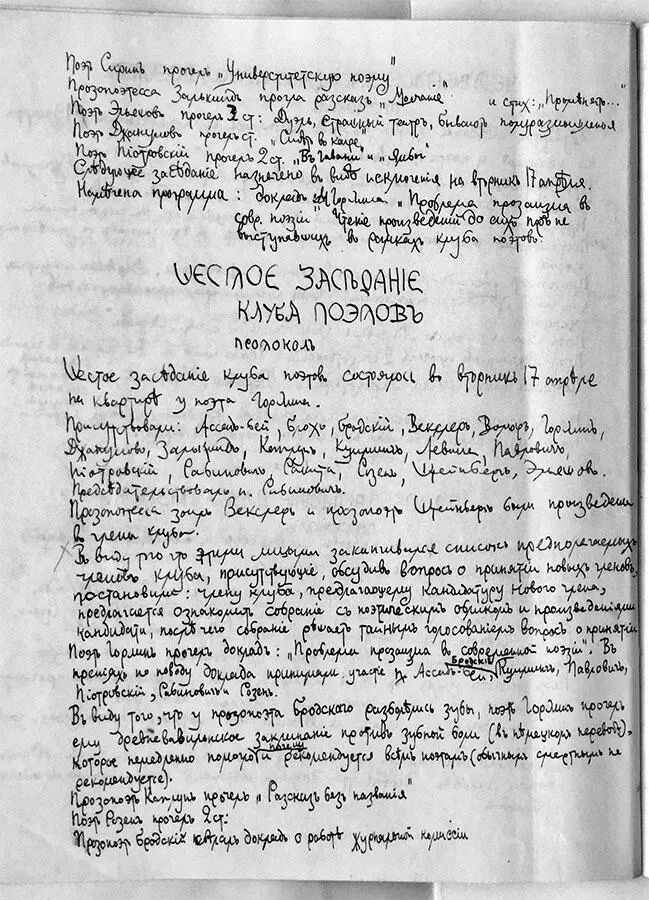 Поэт Сиринъ прочелъ „Университетскую поэму"
Прозопоэтесса Залкиндъ прочла разсказъ „Молчаніе" и стих:
Поэт Эльяшовъ прочелъ 2 ст: Дуэль, Страшный театръ, бываютъ полуразмышленья
Поэт Джанумовъ прочелъ ст. „Сидя въ кафе"
Поэт Піотровскій прочелъ 2 ст. „Въ гавани" и „Ямбы"
Слѣдующее засѣданіе назначено въ видѣ исключенія на вторникъ 17 апрѣля.
Намѣчена программа: докладъ М Горлина „Проблема прозаизма въ
совр. поэзіи" Чтеніе произведеній до сихъ поръ не
выступавшихъ въ рамкахъ клуба поэтовъ.
ШЕСТОЕ ЗАСѢДАНІЕ
КЛУБА ПОЭТОВЪ
ПРОТОКОЛЪ
Шестое засѣданіе клуба поэтовъ состоялось во вторникъ 17 апрѣля
на квартирѣ у поэта Горлина.
Присутствовали: Ассадъ-бей, Блохъ, Бродскій, Векслеръ, Горлинъ,
Джанумовъ, Залкиндъ, Каплунъ, Левина, Павловичъ,
Піотровскій, Рабиновичъ, Розенъ, Штейнбергъ, Эльяшовъ.
Предсѣдательствовалъ п. Рабиновичъ.
Прозопоэтесса Векслеръ и прозопоэтъ Штейнбергъ были произведены
въ члены клуба.
Въ виду того что этими лицами заканчивался списокъ предполагаемыхъ
членовъ клуба, присутствующіе, обсудивъ вопросъ о принятіи новыхъ членовъ,
постановили: члену клуба, предлагающему кандидатуру нового члена,
предлагается ознакомить собраніе съ поэтическимъ обликомъ и произведеніями
кандидата, послѣ чего собраніе рѣшаетъ тайнымъ голосованіемъ вопросъ о принятіи
Поэт Горлинъ прочелъ докладъ: „Проблемы прозаизма въ современной поэзіи". Въ
преніяхъ по поводу доклада принимали участіе Ассадъ-бей, Бродскій, Павловичъ,
Піотровскій, Рабиновичъ и Розенъ.
Въ виду того, что у прозопоэта Бродскаго разболѣлись зубы, поэтъ Горлинъ прочелъ
ему древневавилонское заклинаніе противъ зубной боли (въ нѣмецкомъ переводѣ),
которое немедленно помогло и почему рекомендуется всѣмъ поэтамъ (обычнымъ смертнымъ не
рекомендуется).
Прозопоэт Каплунъ прочелъ „Разсказъ безъ названія"
Поэт Розенъ прочелъ 2 ст:
Прозопоэт Бродскій сдѣлалъ докладъ о работѣ журнальной комиссіи